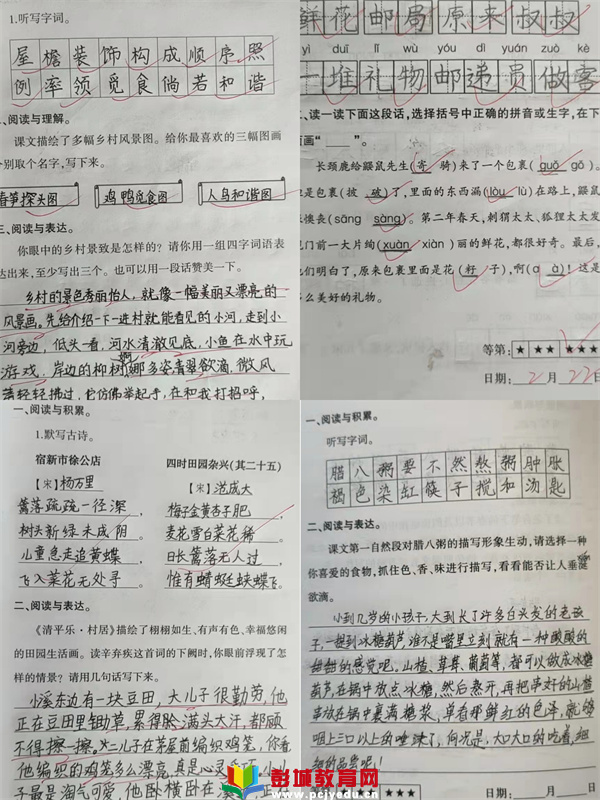 1.听写字词。
屋檐装饰构成顺序照
例率领觅食倘若和谐
、阅读与理解。
课文描绘了多幅乡村风景图。给你最喜欢的三幅图画
别取个名字,写下来。
春笋探头图 鸡鸭觅食图 人鸟和谐图
三、阅读与表达。
你眼中的乡村景致是怎样的?请你用一组四字词语表
达出来,至少写出三个。也可以用一段话赞美一下。
乡村的景色秀丽怡人,就像一幅美丽又漂亮的
风景画。先给介绍一下一进村就能看见的小河,走到小
河旁边,低头一看,河水清澈见底,小鱼在水中玩
游戏,岸边的柳树婀娜多姿青翠欲滴,微风
轻轻拂过,它仿佛举起手,在和我打招呼,
鲜花邮局原来叔叔
yì duī lǐ wù yóu dì yuán zuò kè
一堆礼物邮递员做客
二、读一读下面这段话,选择括号中正确的拼音或生字,在下
面画“ ”。
长颈鹿给鼹鼠先生(寄 骑)来了一个包裹(guǒ gǒ)。
是包裹(披 破)了,里面的东西漏(lòu lù)在路上,鼹鼠
懊丧(sāng sàng)。第二年春天,刺猬太太、狐狸太太发
门前一大片绚(xuàn xiàn)丽的鲜花,都很好奇。最后,
们明白了,原来包裹里面是花(籽 子),啊(a à)!这是
么美好的礼物。
等第: ★ ★★ ★★★
日期: 2月 22日
一、阅读与积累。
1.默写古诗。
宿新市徐公店 四时田园杂兴(其二十五)
[宋]杨万里 [宋]范成大
篱落疏疏一径深, 梅子金黄杏子肥,
树头新绿未成阴。 麦花雪白菜花稀。
儿童急走追黄蝶, 日长篱落无人过,
飞入菜花无处寻。 惟有蜻蜓蛱蝶飞。
二、阅读与表达。
《清平乐·村居》描绘了栩栩如生、有声有色、幸福悠闲
的田园生活画。读辛弃疾这首词的下阕时,你眼前浮现了怎
样的情景?请用几句话写下来。
小溪东边有一块豆田,大儿子很勤劳,他
正在豆田里锄草,累得脸满头大汗,都顾
不得擦一擦。二儿子在茅屋前编织鸡笼,你看
他编织的鸡笼多么漂亮,真是心灵手巧,小儿
子最是淘气可爱,他卧横卧在溪
一、阅读与积累。
听写字词。
腊八粥要不然熬粥肿胀
褐色染缸筷子搅和汤匙
二、阅读与表达。
课文第一自然段对腊八粥的描写形象生动,请选择一种
你喜爱的食物,抓住色、香、味进行描写,看看能否让人垂涎
欲滴。
小到几岁的小孩子,大到长了许多白头发的老孩
子,一想到冰糖葫芦,谁不是嘴里立刻就有一种酸酸的
甜甜的感觉呢,山楂、草莓、葡萄等,都可以做成冰糖
葫芦,在锅中放点冰糖,然后熬开,再把串好的山楂
串放在锅中裹满糖浆,单看那鲜红的色泽,就够
咽上三口以上的唾沫了,何况是,大口大口的吃着,细
细的品尝呢!
日期: 月 日
彭城教育网
www.pcjyedu.cn